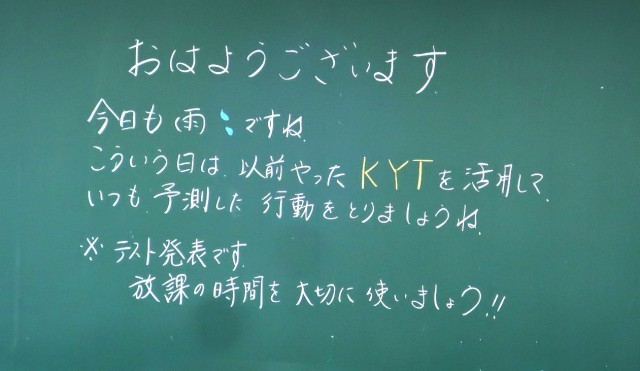 おはようございます
今日も(雨)ですね
こういう日は、以前やったKYTを活用して、
いつも予測した行動をとりましょうね。
※テスト発表です。
放課の時間を大切に使いましょう!!